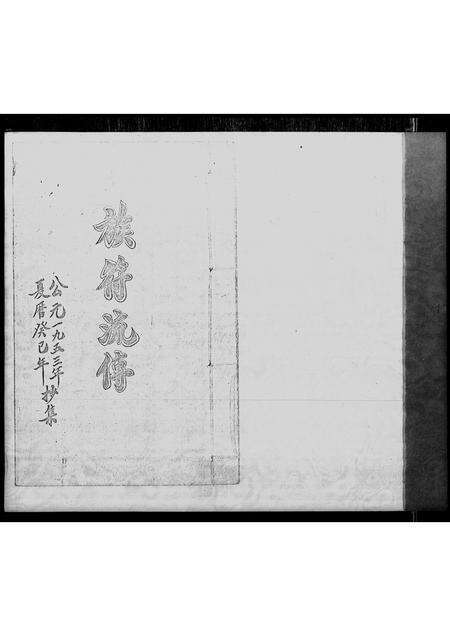 族符流傳
公元一九五三年
夏曆癸巳年抄集